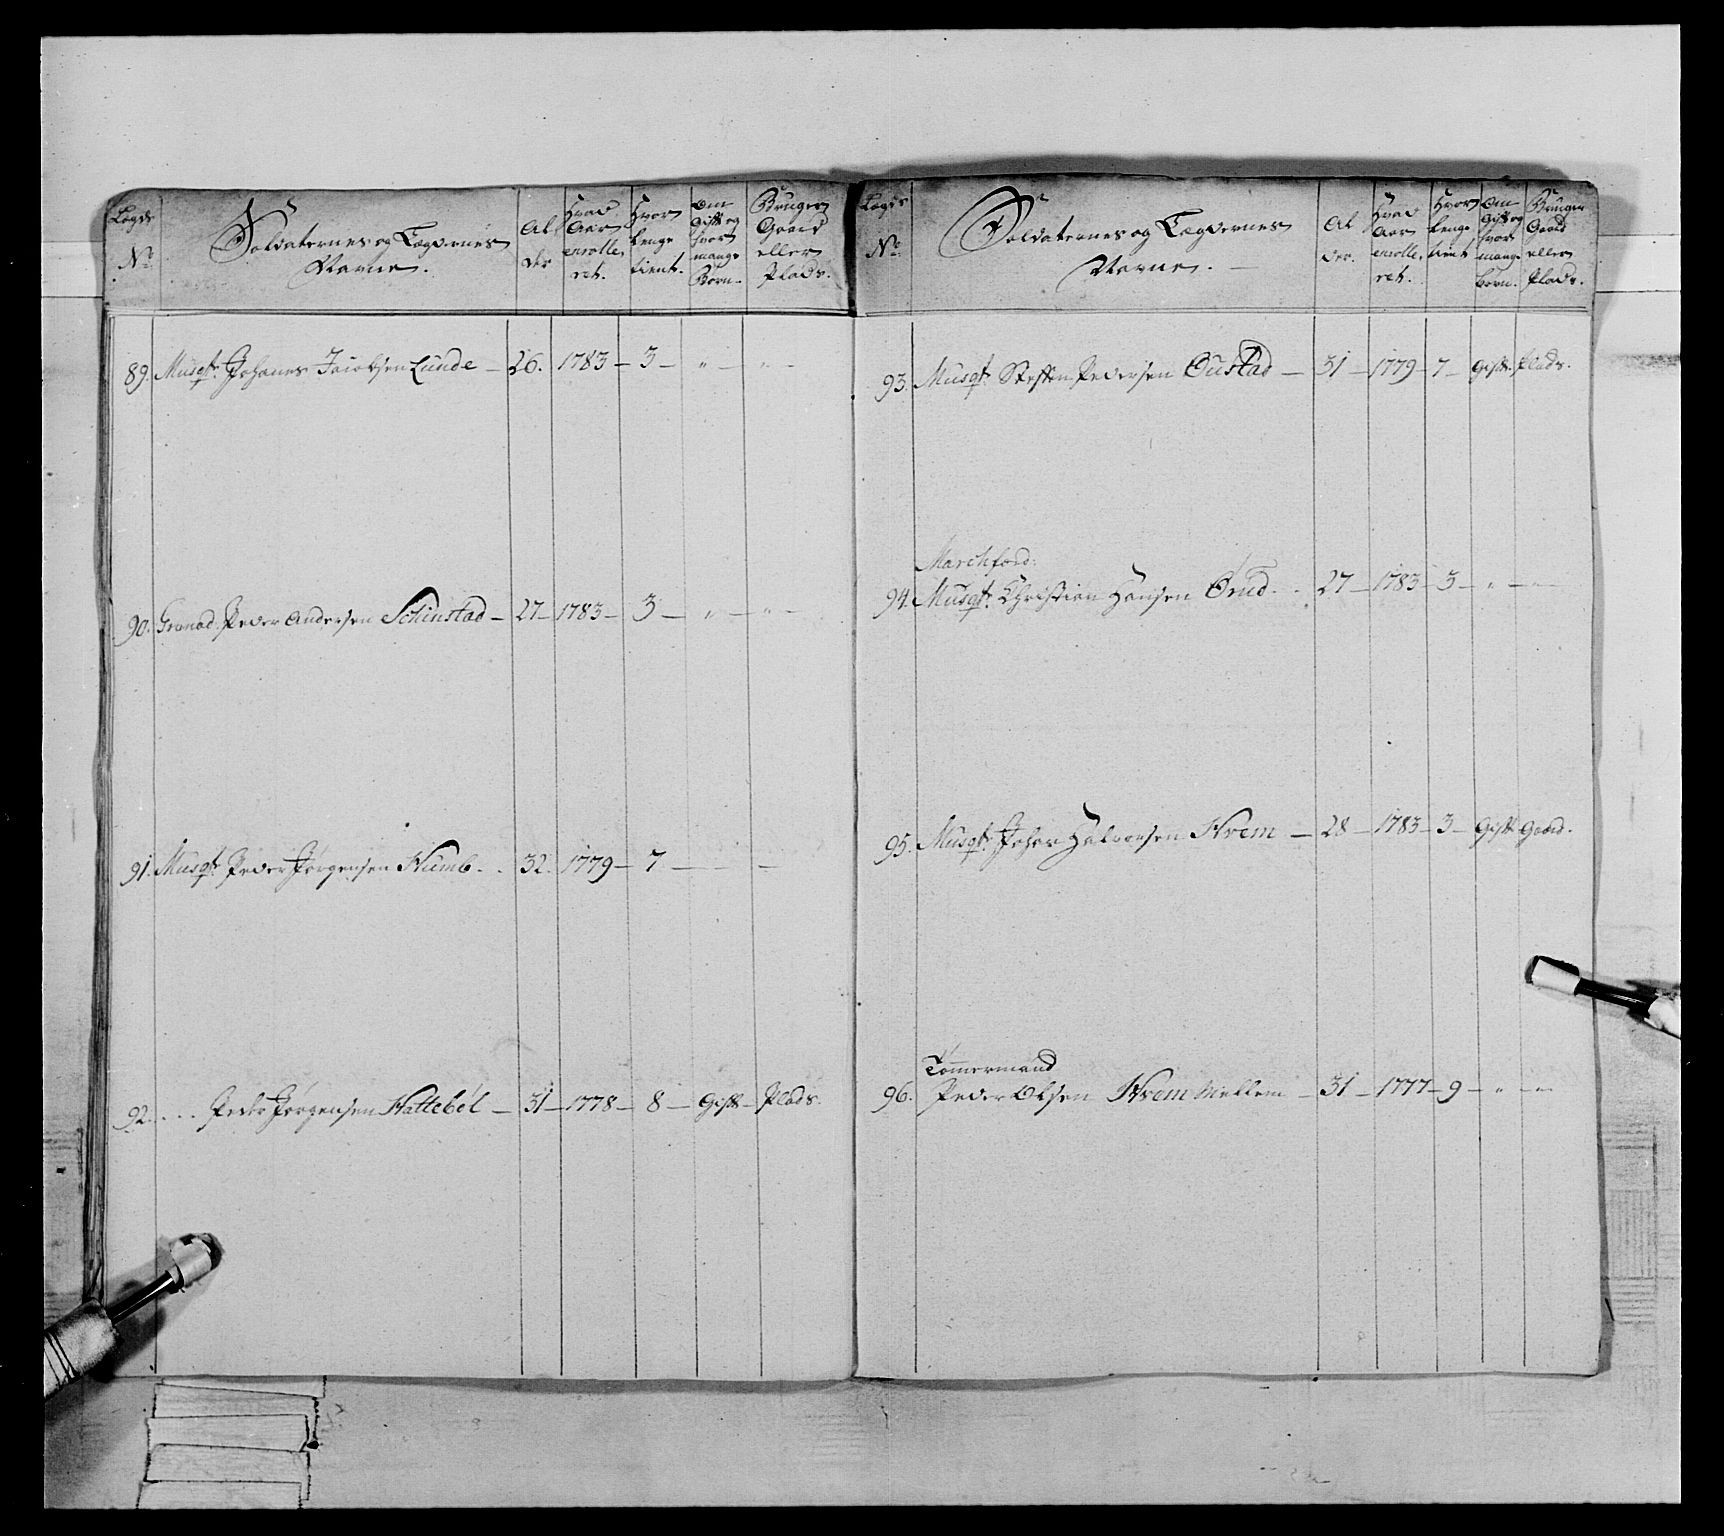 Lægds
No
Soldaternes og Lægdernes
Navne.
Al
der
Hvad
Aar
enrolle
ret.
Hvor
lenge
tient.
Om
Gift og
hvor
mange
Børn.
Bruger
Gaard
eller
Plads.
89. Musqt. Johanes Jacobsen Lunde — 26. 1783 — 3 — " — " —
90. Grenad. Peder Andersen Schinstad — 27 — 1783 — 3 — " — " —
91. Musqt. Peder Jørgensen Humb . . 32. 1779 — 7 — — —
92. . . . Peder Jørgensen Hattebøl — 31 — 1778 — 8 — Gift — Plads.
Lægds
No
Soldaternes og Lægdernes
Navne.
Al
der.
Hvad
Aar
enrolle
ret.
Hvor
lenge
tient
Om
Gift og
hvor
mange
børn.
Bruger
Gaard
eller
Plads.
93. Musqt. Steffen Pedersen Oustad — 31 — 1779 — 7 — Gift. Plads.
Marchford:
94. Musqt. Christian Hansen Ørud . . 27 — 1783 — 3 — " — " —
95. Musqt. Johan Halvorsen Hvem — 28 — 1783 — 3 — Gift Gaard.
Tømmermand
96. Peder Olsen Hvem Mellem — 31 — 1777 — 9 — " — " —